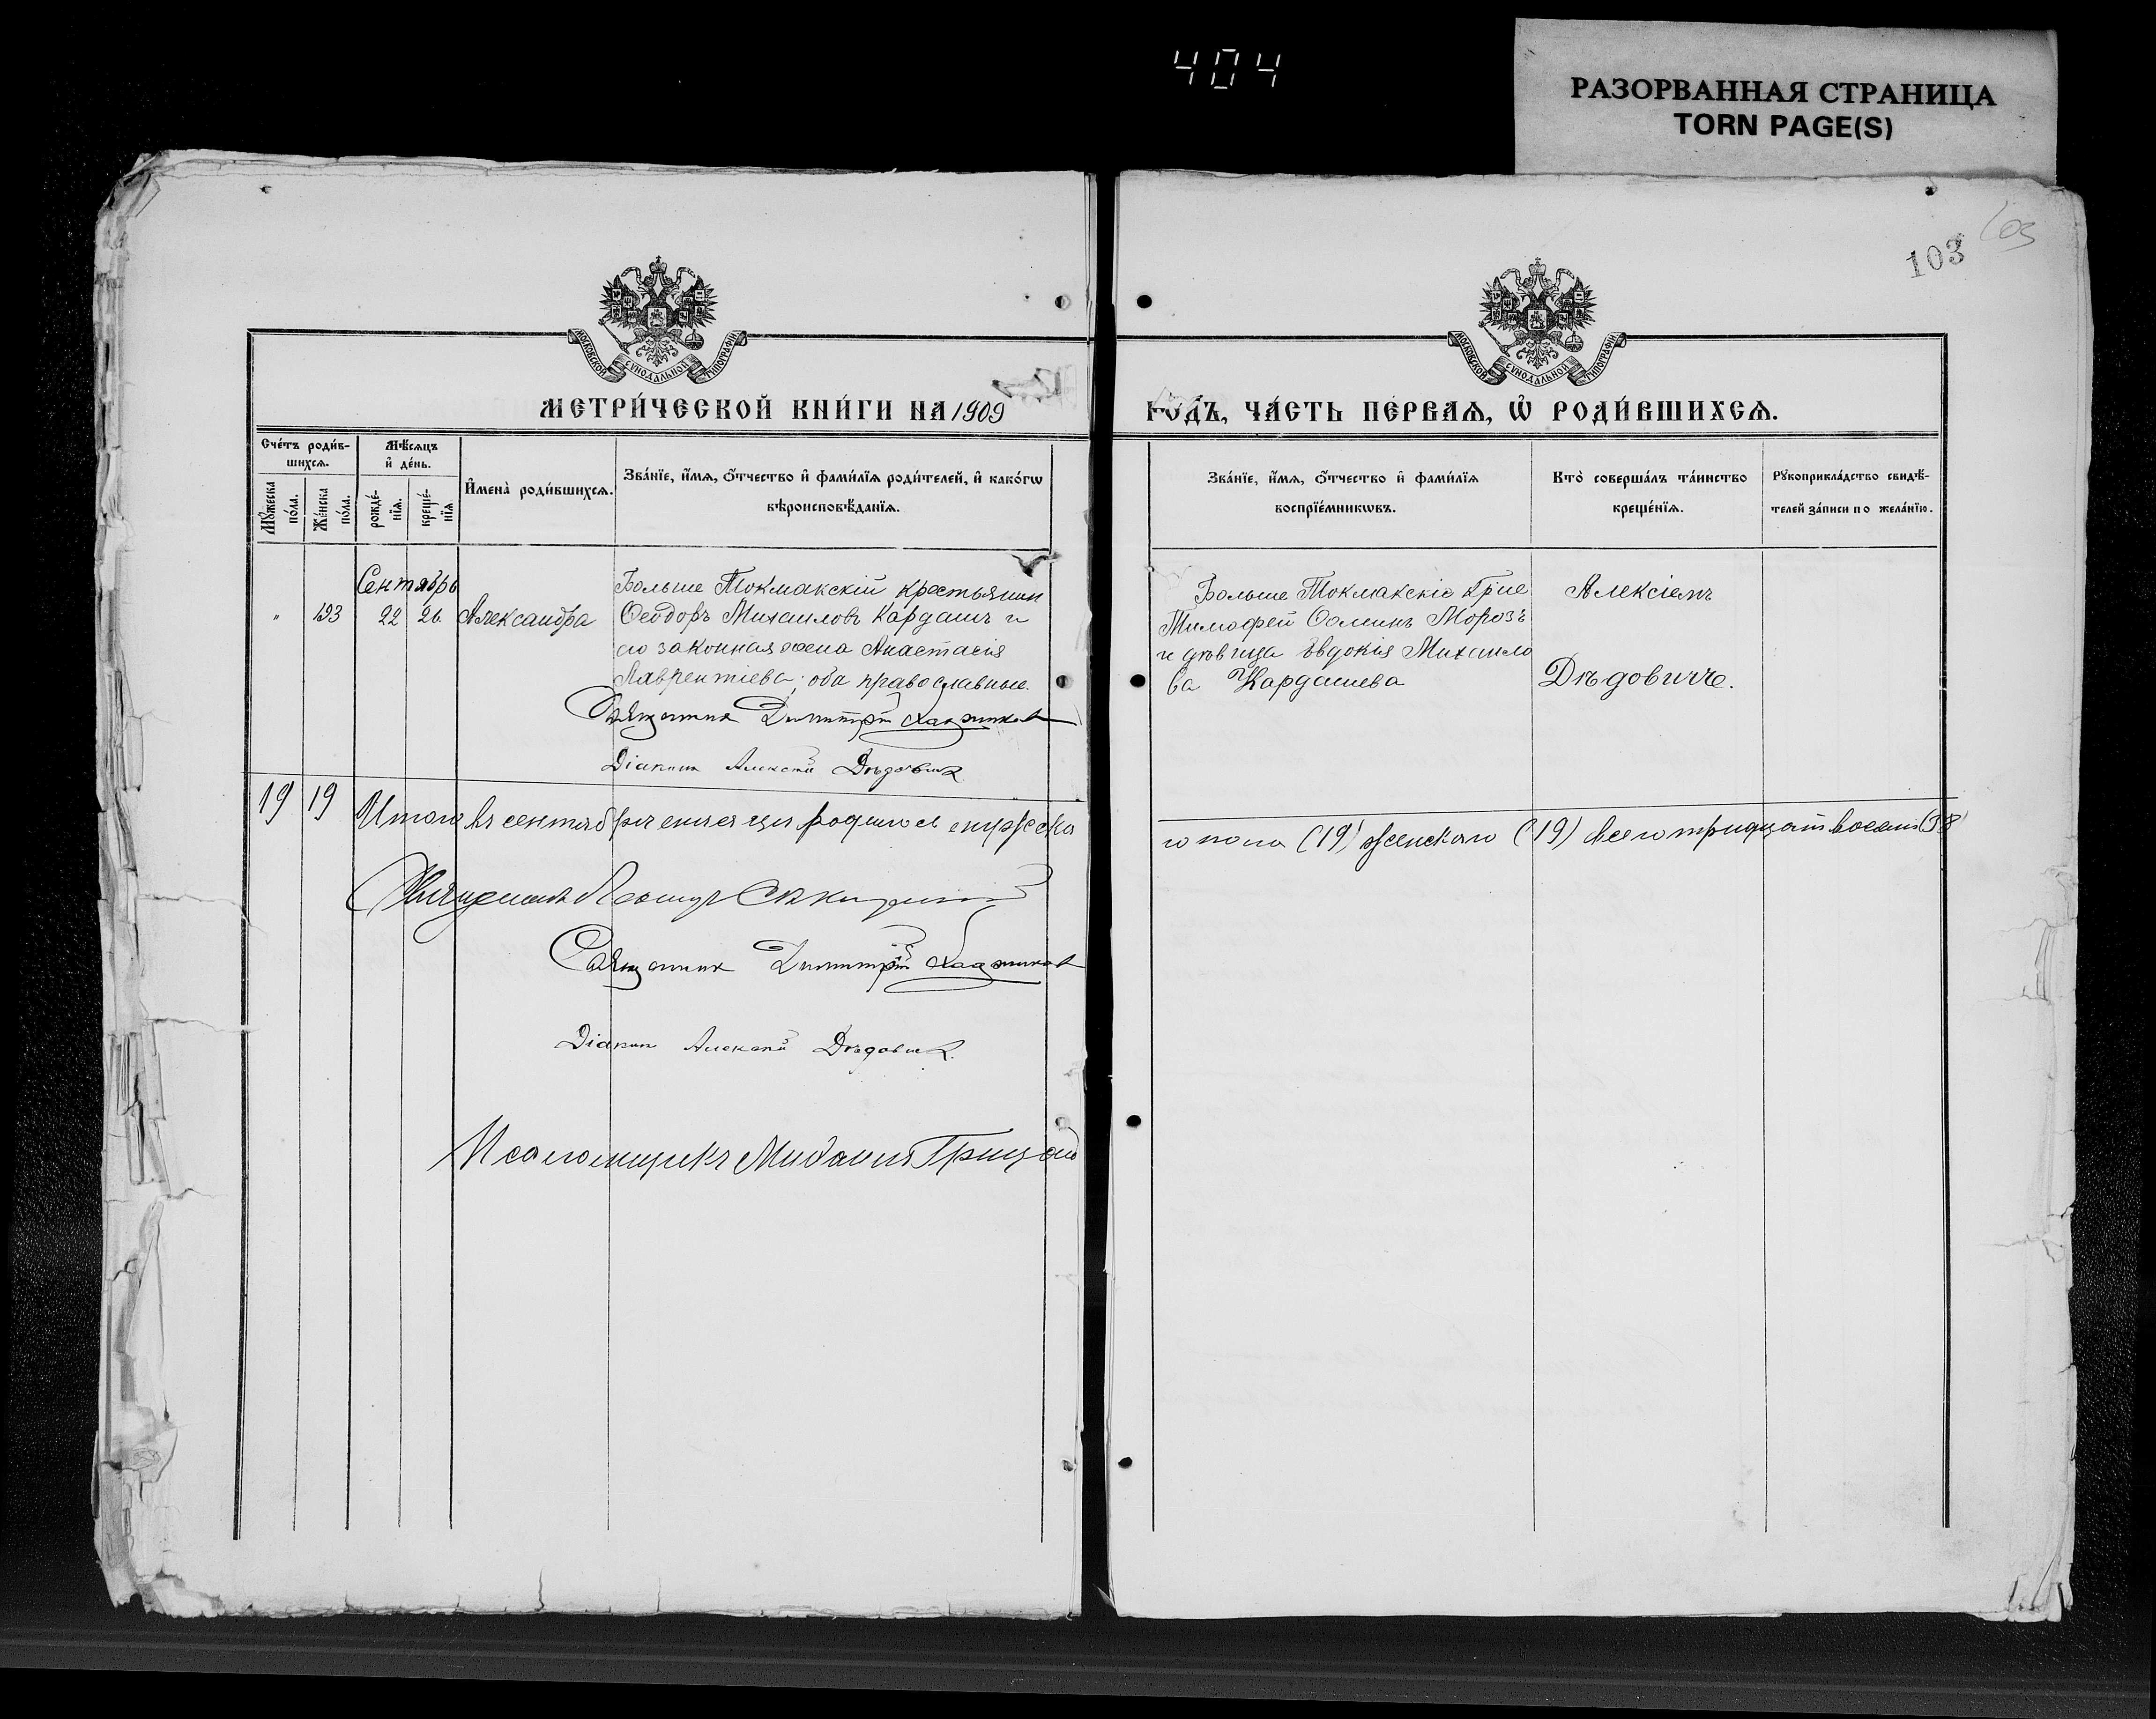 404
РАЗОРВАННАЯ СТРАНИЦА
TORN PAGE(S)
103
103
МОСКОВСКОЙ СѴНОДАЛЬНОЙ ТИПОГРАФІИ
МОСКОВСКОЙ СѴНОДАЛЬНОЙ ТИПОГРАФІИ
МЕТРИ́ЧЕСКОЙ КНИ́ГИ НА 1909
ГОДЪ, ЧА́СТЬ ПЕ́РВАѦ, Ѡ҆ РОДИ́ВШИХСѦ.
Сче́тъ роди́в-
шихсѧ.
Мꙋ́жеска по́ла.
Же́нска по́ла.
Мѣ́сѧцъ
и҆ де́нь.
рожде́-
нїѧ.
креще́-
нїѧ
И҆мена̀ роди́вшихсѧ.
Зва́нїе, и҆́мѧ, ѻ҆́тчество и҆ фами́лїѧ роди́телей, и҆ како́гѡ
вѣроисповѣ́данїѧ.
Зва́нїе, и҆́мѧ, ѻ҆́тчество и҆ фами́лїѧ
воспрїе́мникѡвъ.
Кто̀ соверша́лъ та́инство
креще́нїѧ.
Рꙋкоприкла́дство свидѣ́-
телей за́писи по жела́нїю.
Сентябрь
" 193 22 26 Александра
Больше Токмакскій крестьянин
Ѳеодоръ Михаиловъ Кардашъ и
его законная жена Анастасія
Лаврентіева; оба православные.
Священник Димитрій
Діаконъ Алексій Дѣдович
Больше Токмакскіе кр-не
Тимофей Ѳоминъ Морозъ
и дѣвица Евдокія Михаило
ва Кардашева
Алексіемъ
Дѣдовиче.
19 19
Итого въ сентябрѣ месяце родилось мужска
го пола (19) женскаго (19) всего тридцать восемь (38)
Священникъ Леонидъ
Священник Димитрій
Діаконъ Алексій Дѣдович.
Псаломщикъ Михаилъ Грицай